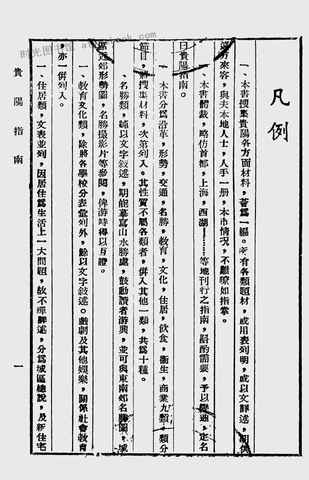 凡例
一、本書搜集貴陽各方面材料，蓍爲一編。所有各類題材，或用表列明，或以文詳述，期使
來客，與夫本地人士，人手一册，本市情况，不難瞭如指掌。
一、本書體裁，略仿首都，上海，西湖………等地刊行之指南，斟酌需要，予以變通，定名
曰貴陽指南。
一、本書分爲沿革，形勢，交通，名勝，教育，文化，住居，飲食，衞生，商業九類，類分
節目，將搜集材料，次第列入。其性質不屬各類者，併入其他一類，共爲十種。
一、名勝類，輔以文字叙述，期能摹寫山水勝處，鼓動讀者游興，並可與東南郊名勝圖，城
區近郊形勢圖，名勝攝影片等參閱，俾游時得以自證。
一、教育文化類，除將各學校分表彙列外，餘以文字叙述。戲劇及其他娛樂，關係社會教育
，亦一併列入。
一、住居類，文表並列，因居住爲生活上一大問題，故不憚詳述，分爲城區總說，及新住宅
貴陽指南
一